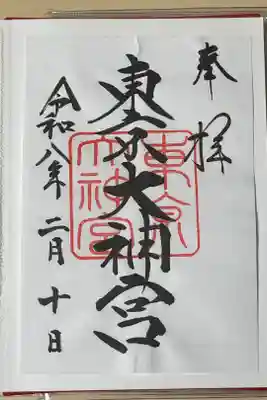 奉拝
東京大神宮
東京大神宮
令和八年二月十日